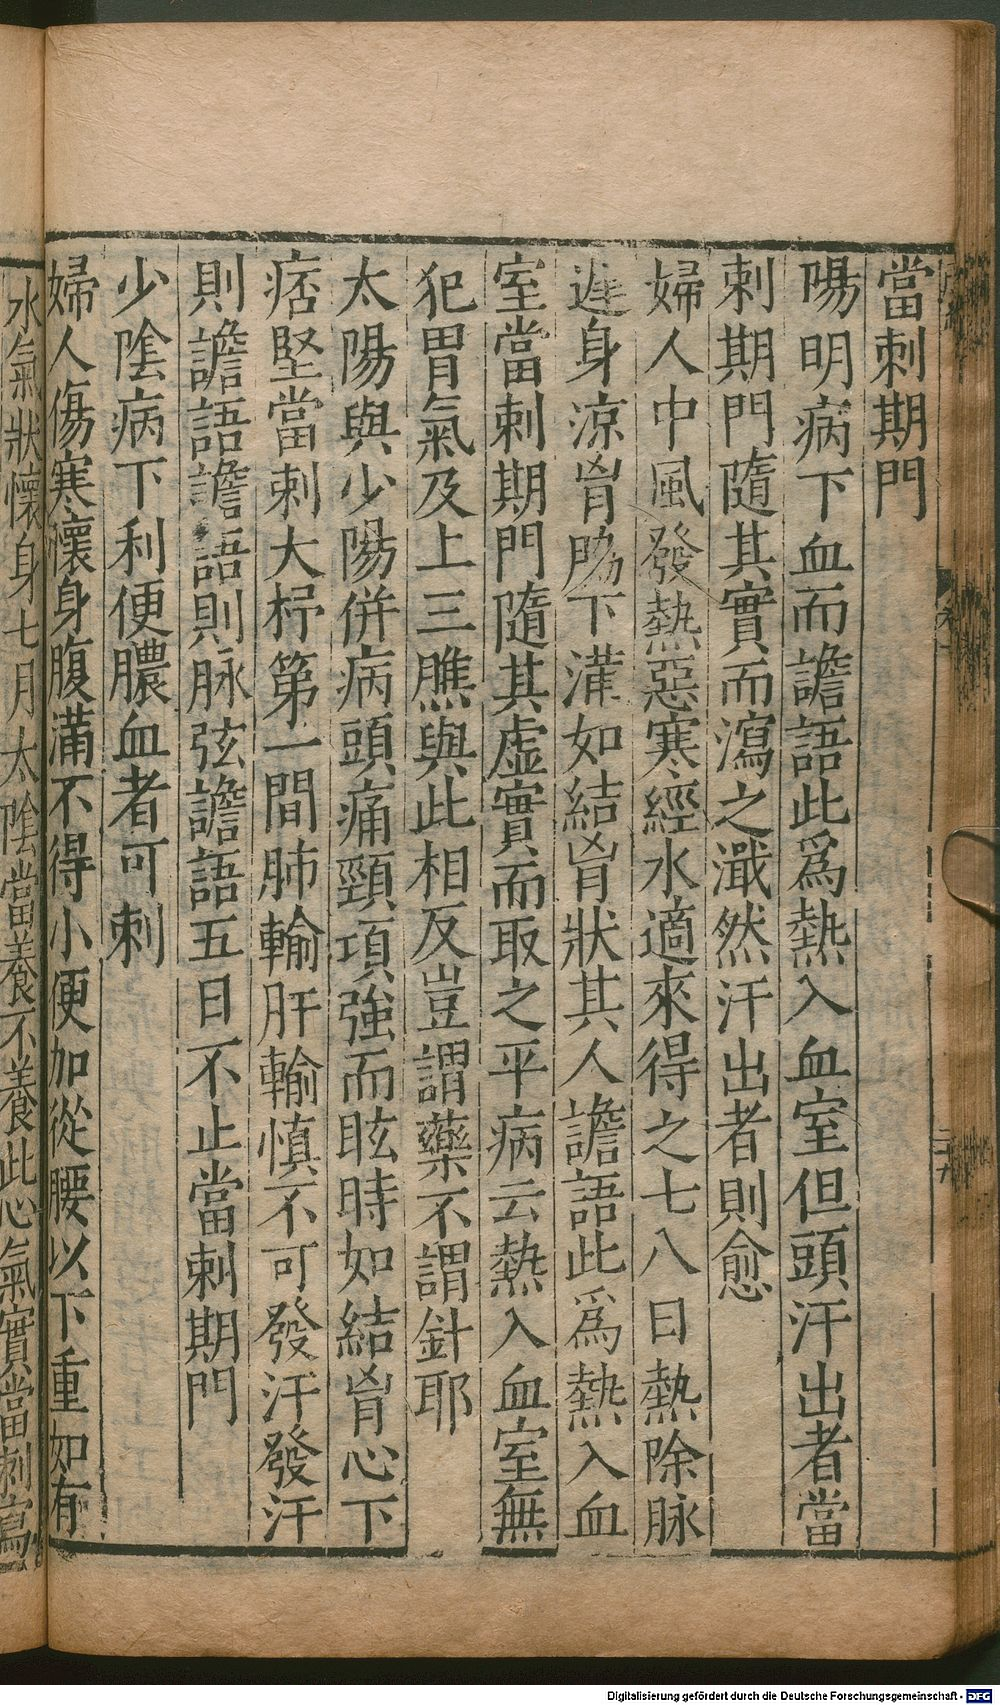 當刺期門
陽明病下血而譫語此為熱入血室但頭汗出者當
刺期門隨其實而瀉之濈然汗出者則愈
婦人中風發熱惡寒經水適來得之七八日熱除脉
遲身涼胷脇下滿如結胷狀其人譫語此為熱入血
室當刺期門隨其虛實而取之平病云熱入血室無
犯胃氣及上三膲與此相反豈謂藥不謂針耶
太陽與少陽併病頭痛頸項強而眩時如結胷心下
痞堅當刺大杼第一間肺輸肝輸慎不可發汗發汗
則譫語譫語則脉弦譫語五日不止當刺期門
少陰病下利便膿血者可刺
婦人傷寒懷身腹滿不得小便加從腰以下重如有
水氣狀懷身七月太陰當養不養此心氣實當刺瀉
Digitalisierung gefördert durch die Deutsche Forschungsgemeinschaft - DFG